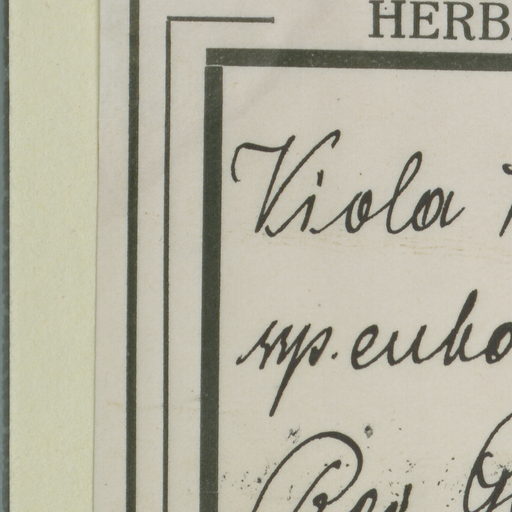 HERB
Viola
ssp. eubo